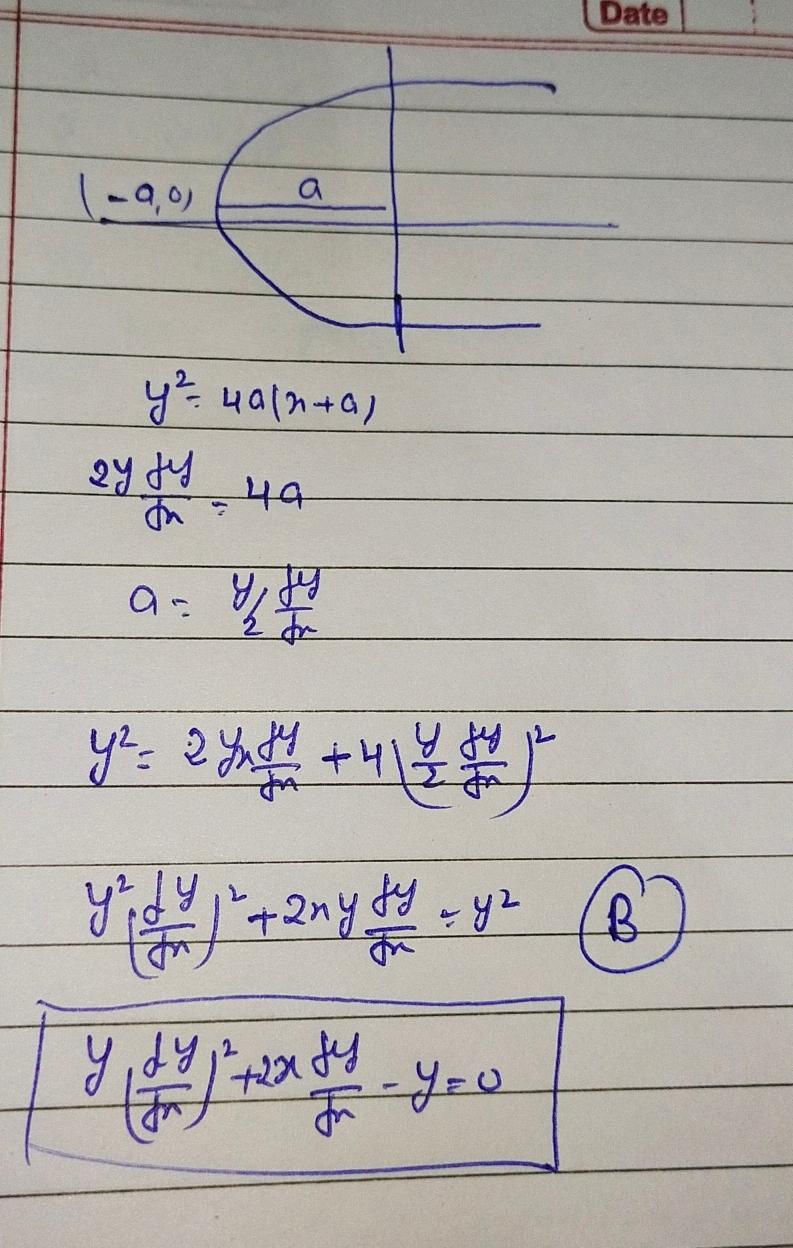 Date
(-a,0) a
y² = 4a(x+a)
2y dy/dx = 4a
a = y/2 dy/dx
y² = 2yx dy/dx + 4(y/2 dy/dx)²
y²(dy/dx)² + 2xy dy/dx = y² B
y(dy/dx)² + 2x dy/dx - y = 0